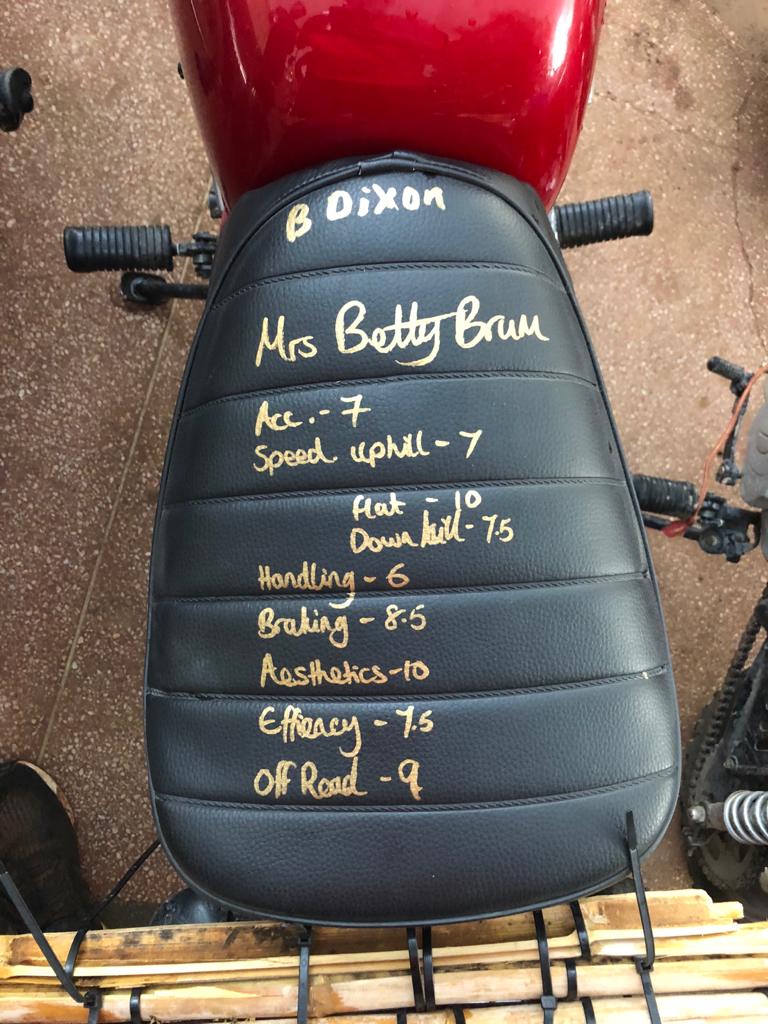 B Dixon
Mrs Betty Brum
Acc. - 7
Speed uphill - 7
Flat - 10
Down hill - 7.5
Handling - 6
Braking - 8.5
Aesthetics - 10
Effiency - 7.5
Off Road - 9